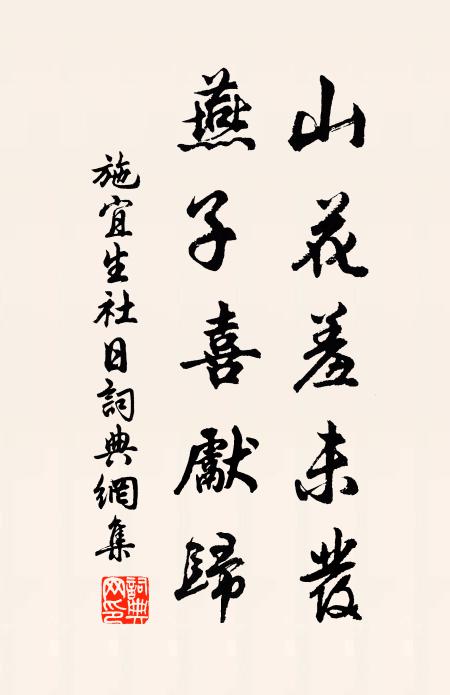 山花羞未發
燕子喜獻歸
施宜生社日詞典網集
詞典网印